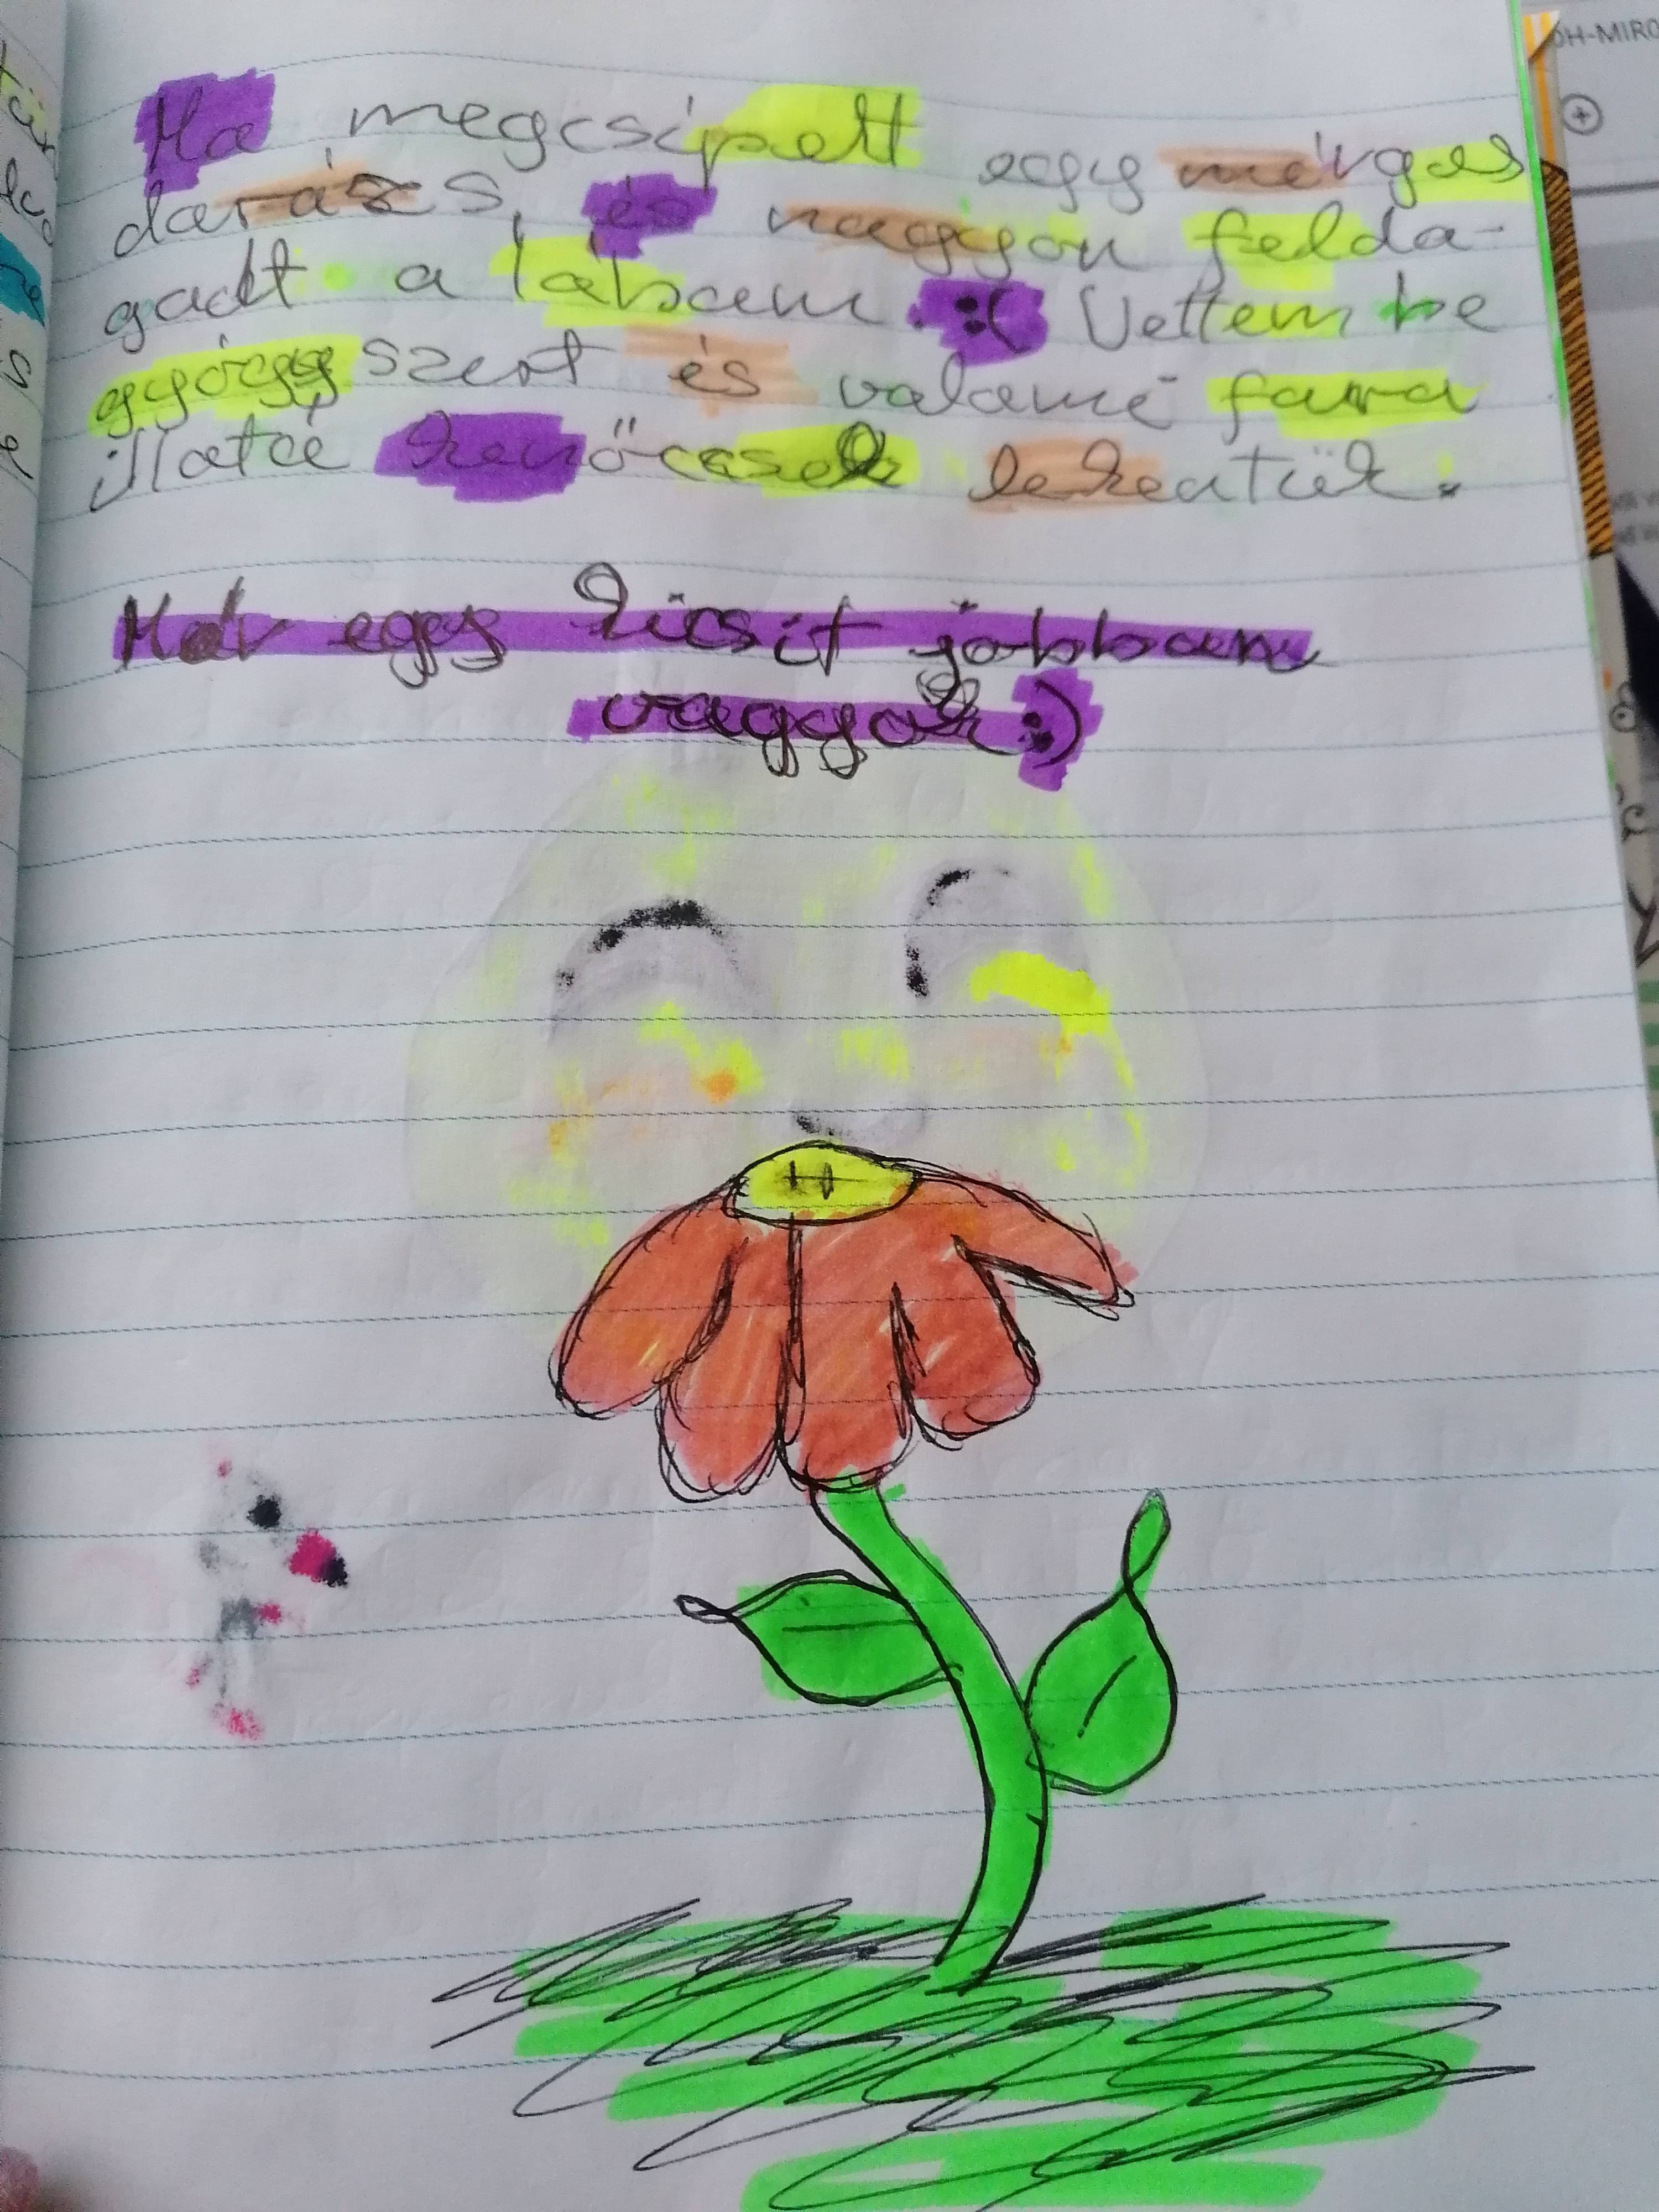 Ma megcsípett egy mérges
darázs, és nagyon felda-
gadt a lábam :( Vettem be
gyógyszert és valami fura
illatú kenőccsel lekentük.
Már egy kicsit jobban
vagyok :)
ÖH-MIRO